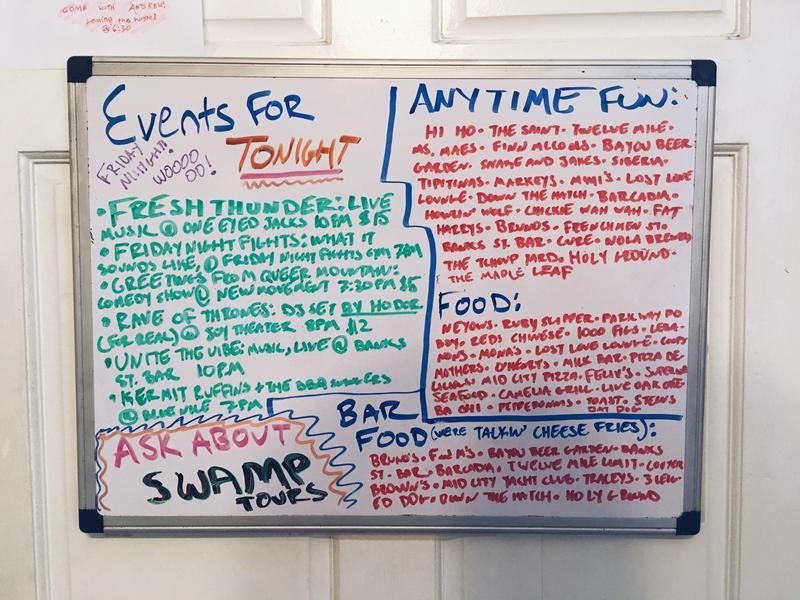 COME WITH ANDREW!
leaving the hostel
@ 6:30
Events FOR
TONIGHT
FRIDAY
WOOOO
OO!
• FRESH THUNDER: LIVE
MUSIC @ ONE EYED JACKS 10PM $15
• FRIDAY NIGHT FIGHTS: WHAT IT
SOUNDS LIKE, @ FRIDAY NIGHT FIGHTS GYM 7PM
• GREETINGS FROM QUEER MOUNTAIN:
COMEDY SHOW @ NEW MOVEMENT 7:30PM $5
• RAVE OF THRONES: DJ SET BY HODOR
(FOR REAL) @ JOY THEATER 8PM
• UNITE THE VIBE: MUSIC, LIVE @ BANKS
ST. BAR 10PM
• KERMIT RUFFINS + THE BBQ SWINGERS
@ BLUE NILE 7PM
ASK ABOUT
SWAMP
TOURS
ANYTIME FUN:
HI HO • THE SAINT • TWELVE MILE •
MS. MAES • FINN MCCOOLS • BAYOU BEER
GARDEN • SNAKE AND JAKES • SIBERIA •
TIPITINAS • MARKEYS • MIMI'S • LOST LOVE
LOUNGE • DOWN THE HATCH • BARCADIA •
HOWLIN' WOLF • CHICKIE WAH WAH • FAT
HARRYS • BRUNOS • FRENCHMEN ST. •
BANKS ST. BAR • CURE • NOLA BREWING
THE TCHOUP YARD • HOLY GROUND •
THE MAPLE LEAF
FOOD:
NEYOWS • RUBY SLIPPER • PARKWAY PO
BOY • REDS CHINESE • 1000 FIGS • LEBA-
NONS • MONA'S • LOST LOVE LOUNGE •
MOTHERS • O'HENRYS • MILK BAR • PIZZA DE-
LICIOUS MID CITY PIZZA • SUPERIOR
SEAFOOD • CAMELIA GRILL • LIVE OAK CAFE •
BA CHI • PEPPERONNIS • TOAST • STEINS
DAT DOG
BAR
FOOD (WE'RE TALKIN' CHEESE FRIES):
BRUNO'S • F & M'S • BAYOU BEER GARDEN • BANKS
ST. BAR • BARCADIA • TWELVE MILE LIMIT • COOTER
BROWN'S • MID CITY YACHT CLUB • TRACEYS • 3 LEG-
ED DOG • DOWN THE HATCH • HOLY GROUND